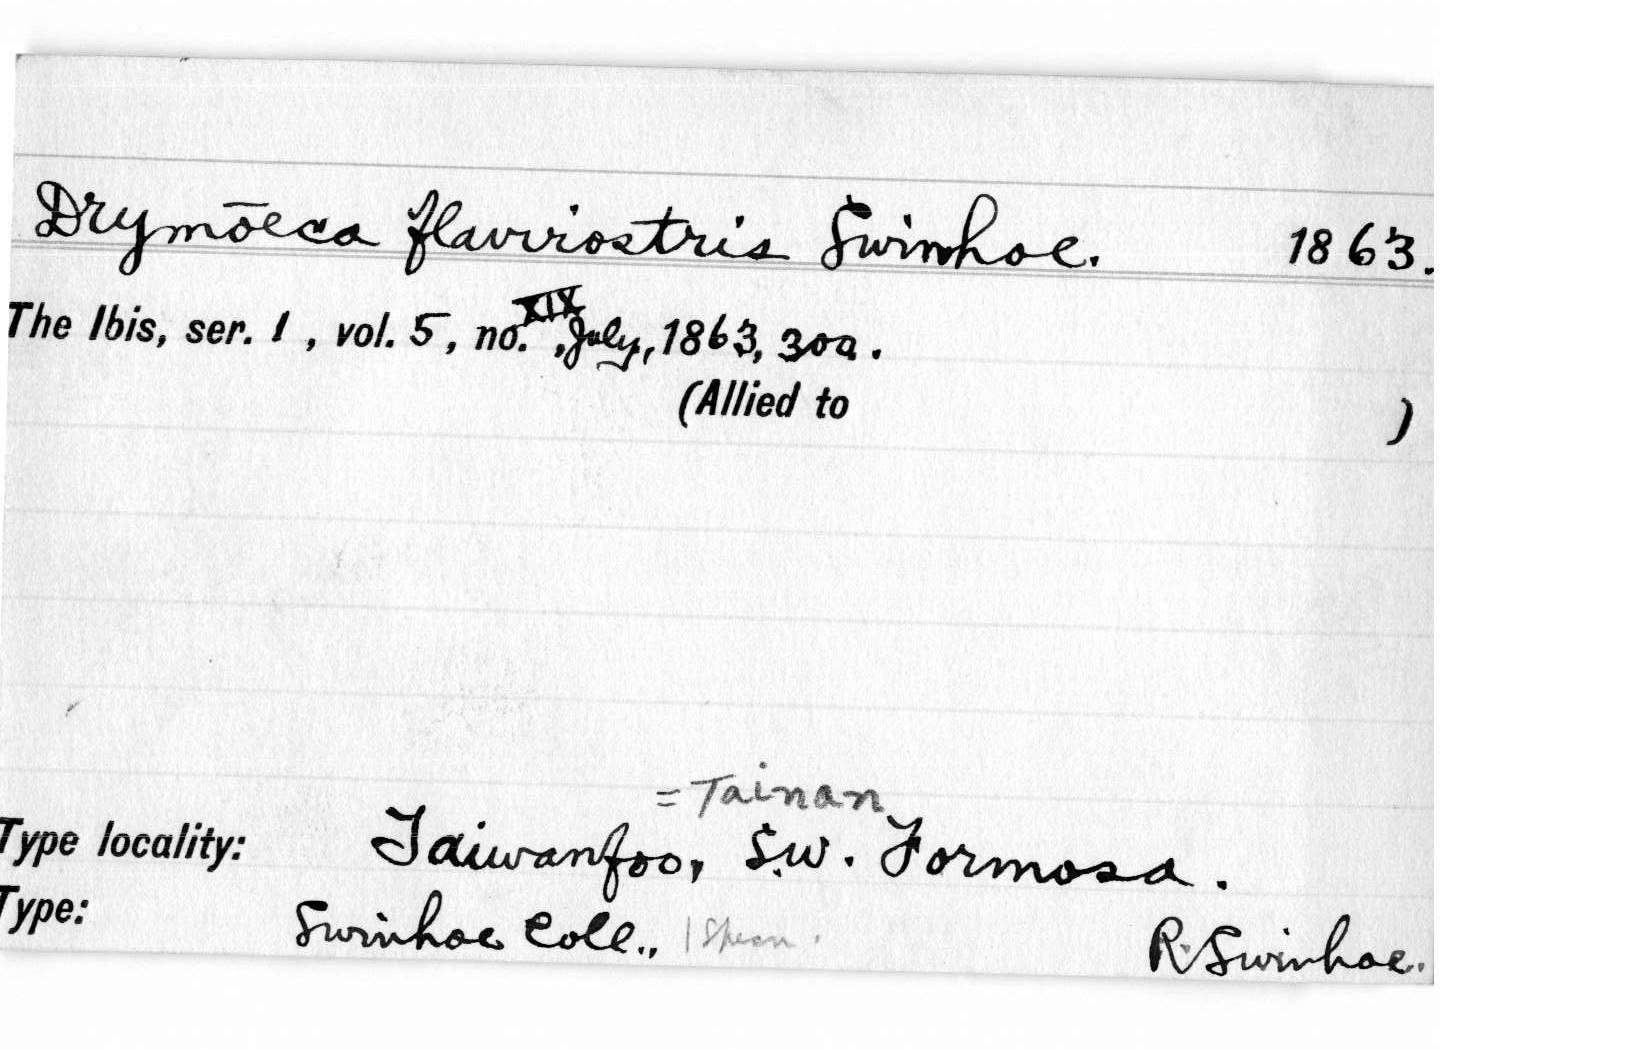 Drymōeca flavirostris Swinhoe. 1863.
The Ibis, ser. 1, vol. 5, no. XIX, July, 1863, 300.
(Allied to )
= Tainan
Type locality: Taiwanfoo, S.W. Formosa.
Type: Swinhoe Coll., 1 Specn. R. Swinhoe.